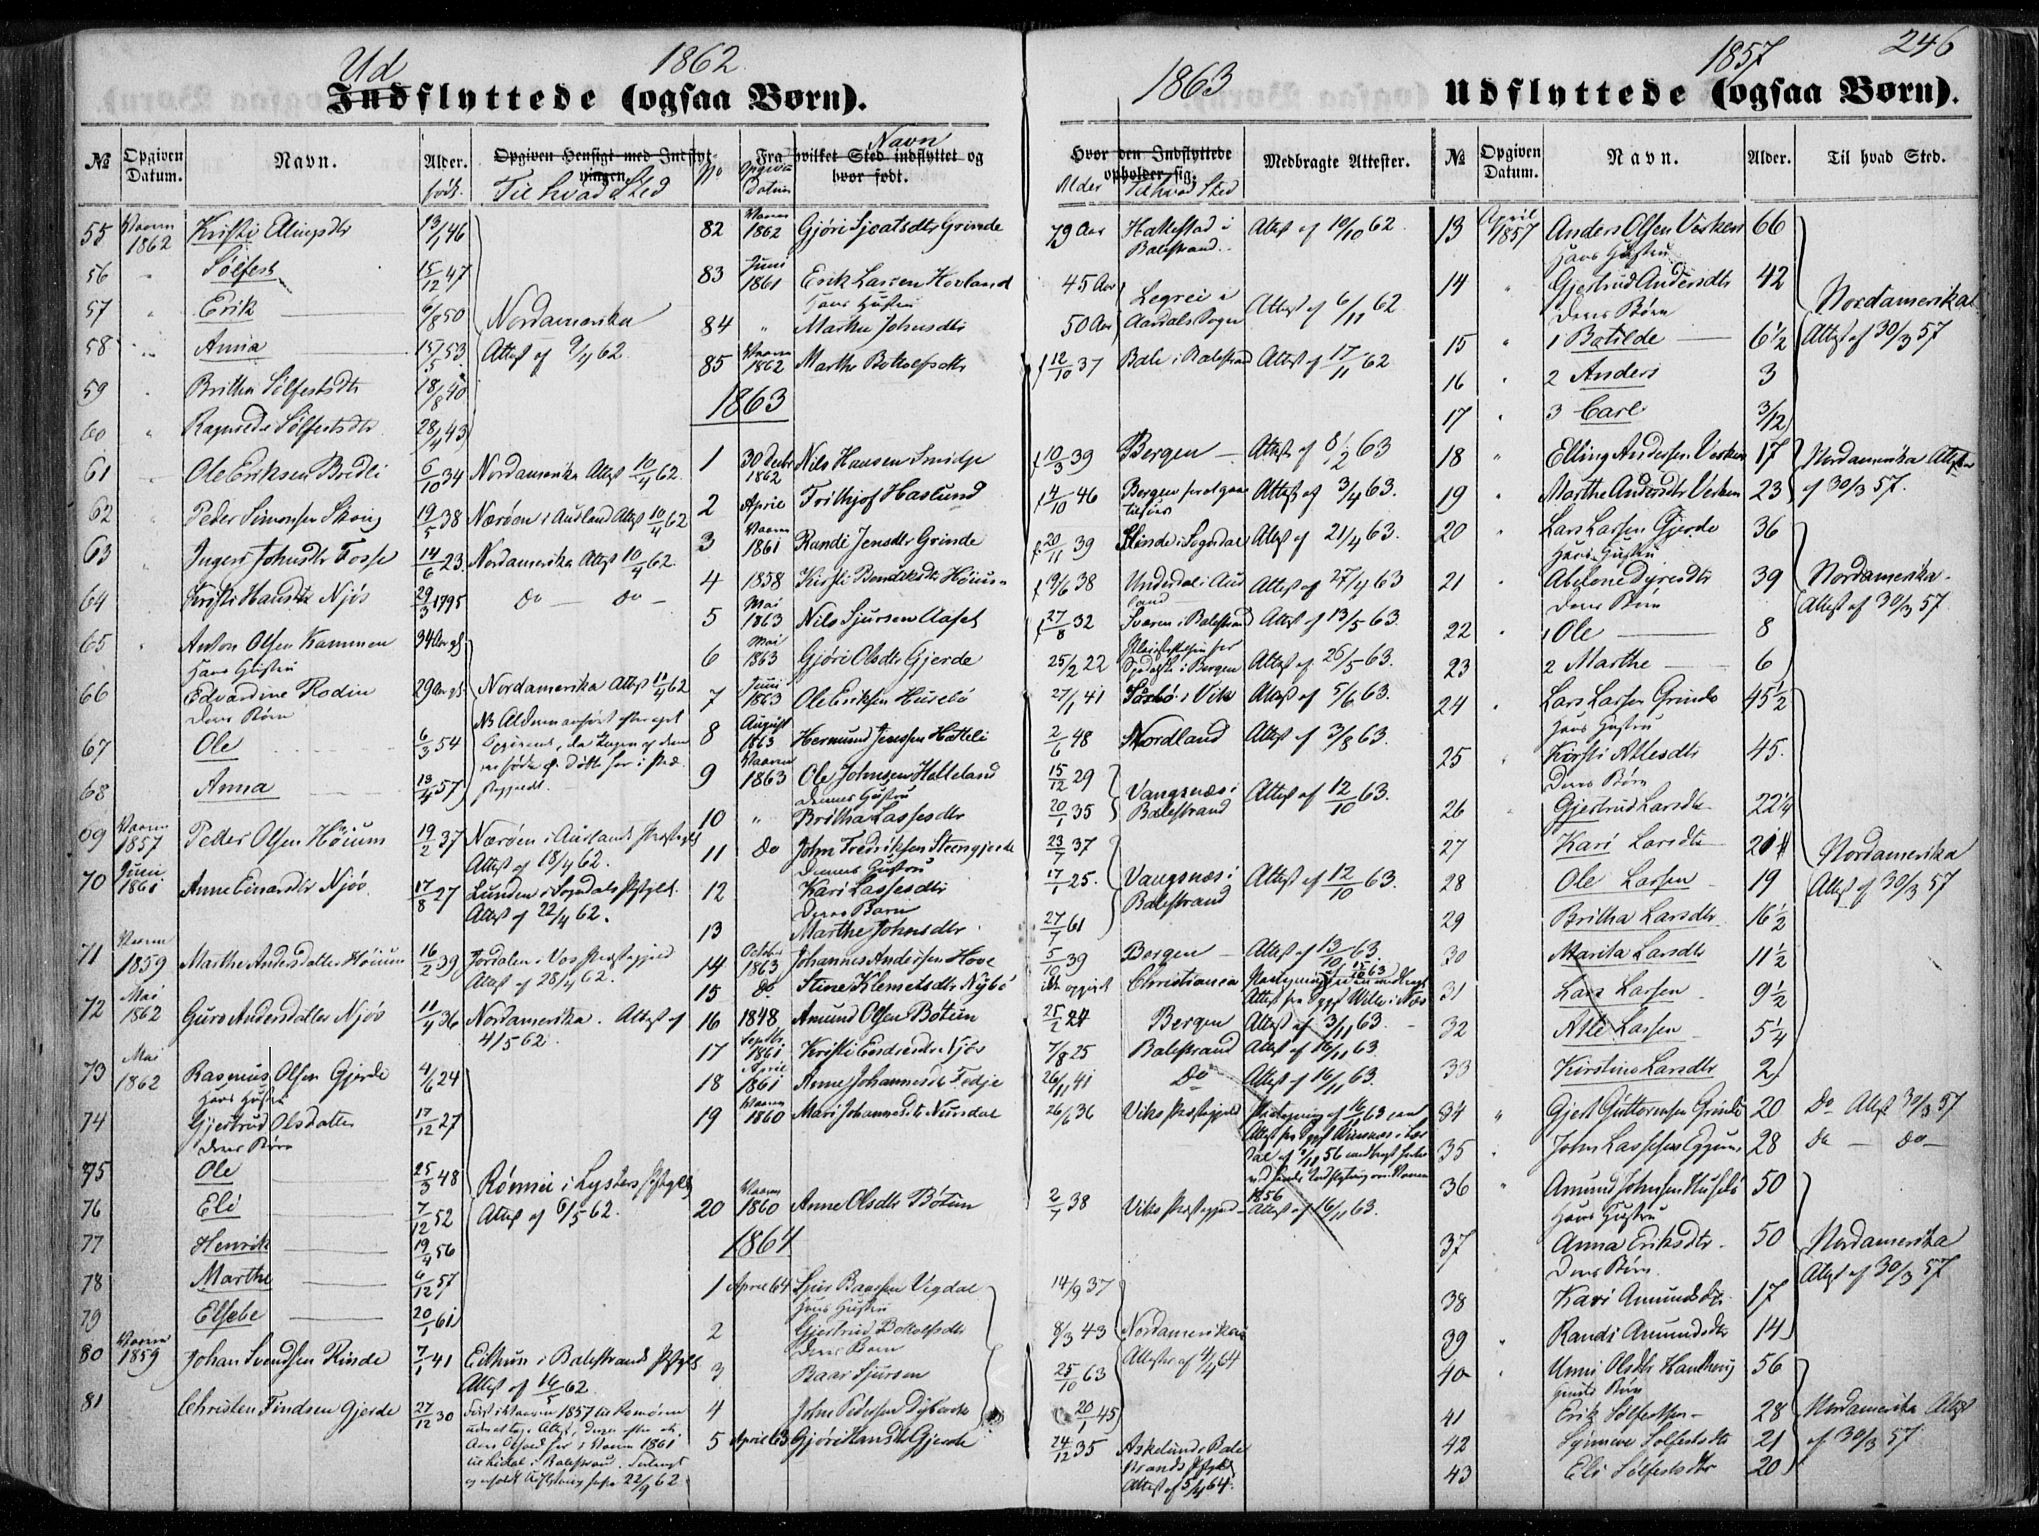 Ud 1862
Indflyttede (ogsaa Børn).
№ Opgiven Datum. Navn. Alder. født. Opgiven Hensigt med Indflytningen. Til hvad Sted
No Opgiven Datum Fra hvilket Sted indflyttet og hvor født. Navn
55 Vaaren 1862 Kristi Ellingsdtr 13/1 46
56 " Sølfest 15/12 47
57 " Erik 6/8 50 Nordamerika
58 " Anna 15/5 53 Attest af 9/4 62.
59 " Britha Sølfestsdtr 18/8 40
60 " Ragnilde Sølfestsdtr 28/4 43
61 " Ole Eriksen Bredli 6/10 34 Nordamerika Attest 10/4 62.
62 " Peder Simonsen 19/5 38 Nærøen i Aurland Attest 10/4 62
63 " Inger Johnsdtr Fosse 14/6 23. Nordamerika Attest 10/4 62.
64 " Kristi Hansdtr Njøs 29/3 1795 Do — Do —
65 " Anton Olsen Kammen 34 Aar gl
Hans Hustru
66 Edvardine Rodin 29 Aar gl. Nordamerika Attest 11/4 62
Deres Børn
67 Ole 6/3 54
68 Anna 13/4 57
69 Vaaren 1857 Peder Olsen Höium 19/2 37 Nærøen i Aurlands Præstegjeld
Attest af 18/4 62.
70 Juni 1861 Anne Einarsdtr Njøs 17/8 27 Lunden i Sogndals Præstgjld.
Attest af 22/4 62.
71 Vaaren 1859 Marthe Andersdatter Höium 16/2 39 Jordalen i Vos Præstegjeld
Attest af 28/4 62.
72 Mai 1862 Guro Andersdatter Njøs 11/4 36 Nordamerika. Attest af
4/5 62.
73 Mai 1862 Rasmus Olsen Gjerde 4/6 24
Hans Hustru
74 Gjertrud Olsdatter 17/12 27
Deres Børn
75 Ole 25/3 48 i Lysters Præstgjld
76 Eli 7/12 52 Attest af 6/5 62.
77 Henrik 19/4 56
78 Marthe 6/12 57
79 Elsebe 20/1 61
80 Vaaren 1859 Johan Svendsen Rinde 7/1 41 i Balestrands Præstgjld
Attest af 16/5 62
81 Christen Findsen Gjerde 27/12 30
82 Vaaren 1862 Gjøri Grinde
83 Juni 1861 Erik Larsen Hovland
Hans Hustru
84 " Marthe Johnsdtr
85 Vaaren 1862 Marthe Botholfsdtr
1863
1 30 Decbr 1862 Nils Hansen Smidje
2 April Frithjof Haslund
3 Vaaren 1861 Randi Jensdtr Grinde
4 1858 Kirsti
5 Mai 1863 Nils Sjursen Aaset
6 Mai 1863 Gjøri Olsdtr Gjerde
7 Juni 1863 Ole Eriksen Husebö
8 August 1863 Hermund Jenssen Hatteli
9 Vaaren 1863 Ole Johnsen Helleland
Dennes Hustru
10 " Britha Lassesdtr
11 Do John Fredriksen Steengjerde
Dennes Hustru
12 Kari Lassesdtr
Deres Barn
13 Marthe Johnsdtr
14 October 1863 Johannes Andersen Hove
15 Do Stine Klemetsdtr Nybö
16 1848 Amund Olsen Bötun
17 Septbr 1861 Kristi Endresdtr Njös
18 April 1861 Anne Johannesdtr
19 Vaaren 1860 Mari Johannesdtr
20 Vaaren 1860 Anne Olsdtr Bötun
1864
1 April 64 Sjur Baarsen Vigdal
Hans Hustru
2 Gjertrud Botolfsdtr
Deres Barn
3 Baar Sjursen
4 John Pedersen
5 April 63 Gjøri Hansdtr Gjerde
1863 1857 246
Udflyttede (ogsaa Børn).
Hvor den Indflyttede opholder sig. Alder Til hvad Sted Medbragte Attester.
№ Opgiven Datum. Navn. Alder. Til hvad Sted.
79 Aar i Balestrand. Attest af 10/10 62.
45 Aar i
50 Aar Aardals Sogn Attest af 6/11 62
f 12/10 37 Bale i Balestrand Attest af 17/11 62
f 10/3 39 Bergen — Attest af 8/2 63
f 4/10 46 Bergen Attest af 3/4 63.
f. 20/11 39 Slinde i Sogndal Attest af 21/4 63.
f 9/6 38 Underdal i Aurland Attest af 27/4 63
f 27/8 32 Sværen i Balestrand Attest af 13/5 63.
25/2 22 i Bergen Attest af 26/5 63.
27/1 41 i Vik Attest af 5/6 63.
2/6 48 Nordland Attest af 3/8 63.
15/12 29 Vangsnæs i
20/1 35 Balestrand Attest af 12/10 63.
23/7 37
17/1 25. Vangsnæs i Attest af 12/10 63.
27/7 61 Balestrand
5/10 39 Bergen — Attest af 13/10 63.
ikke opgivet Christiania
25/2 24 Bergen Attest af 3/11 63.
7/8 25 Balestrand Attest af 16/11 63.
26/11 41 Do Attest af 16/11 63.
26/6 36 Viks Præstegjeld
2/7 38 Viks Præstegjeld Attest af 16/11 63.
14/9 37
8/3 43 Nordamerika
25/10 63 Attester af 4/4 64
20/1 45
24/12 35 Askelund i Balestrands Præstgjld
Attest af 5/4 64.
13 April 1857 Anders Olsen 66
Hans Hustru
14 " Gjertrud Andersdtr 42
Deres Børn Nordamerika
15 " 1 Botilde 6½ Attest af 30/3 57
16 " 2 Anders 3
17 " 3 Carl 3/12
18 " Elling Andersen 17 Nordamerika Attester
19 " Marthe Andersdtr 23 af 30/3 57.
20 " Lars Larsen Gjerde 36
Hans Hustru
21 " Abelone 39 Nordamerika.
Deres Børn Attest af 30/3 57
22 " 1 Ole 8
23 2 Marthe 6
24 " Lars Larsen Grinde 45½
Hans Hustru
25 Kirsti Atlesdtr 45.
Deres Børn
26 " Gjertrud Larsdtr 22¼
27 Kari Larsdtr 20 Nordamerika
28 Ole Larsen 19 Attest af 30/3 57
29 Britha Larsdtr 16½
30 Marita Larsdtr 11½
31 Lars Larsen 9½
32 Atle Larsen 5¼
33 Kirstine Larsdtr 2
34 " Gjert Guttormsen Grinde 20 Do Attest 30/3 57
35 " John Lassesen Eggum 28 Do — Do —
36 " Amund Johnsen Husebö 50
Hans Hustru
37 Anna Eriksdtr. 50 Nordamerika
Deres Børn. Attest af 30/3 57
38 Kari Amundsdtr 17
39 Randi Amundsdtr 14
40 " Unni Olsdtr 56
Hendes Børn
41 Erik Sølfestsen 28 Nordamerika Attest
42 Synneve Sølfestsdtr 21 af 30/3 57
43 Eli Sølfestsdtr 20